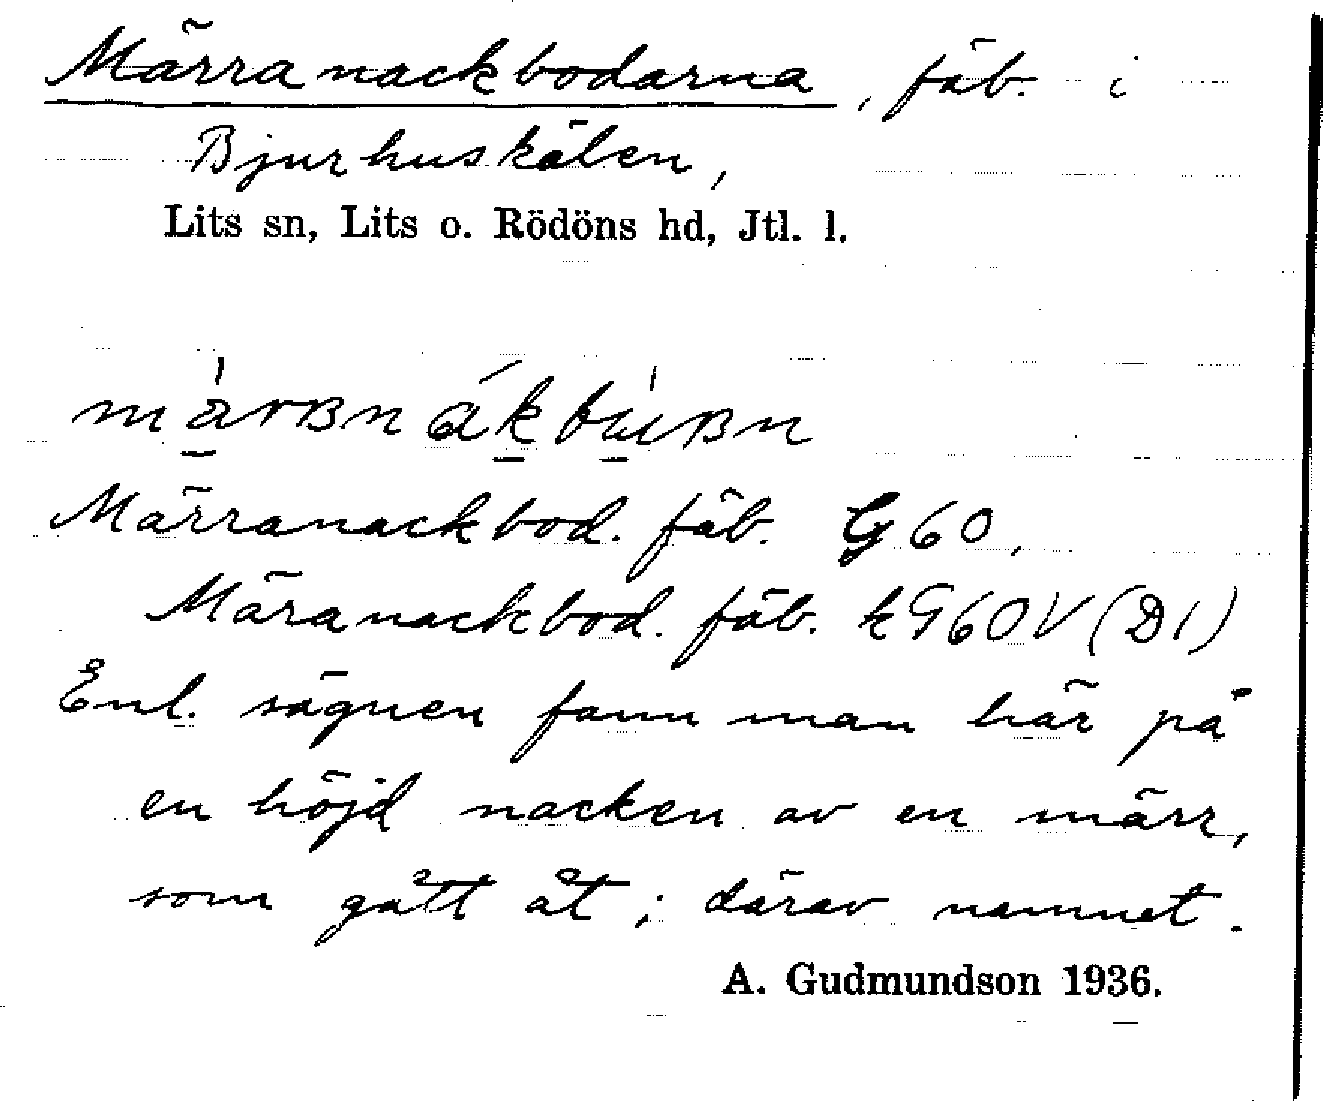 Märranackbodarna, fäb. i
Bjurhuskälen,
Lits sn, Lits o. Rödöns hd, Jtl. l.
Märranackbod. fäb. G 60,
Märanackbod. fäb. k G60V (D1)
Enl. sägnen fann man här på
en höjd nacken av en märr,
som gått åt; därav namnet.
A. Gudmundson 1936.